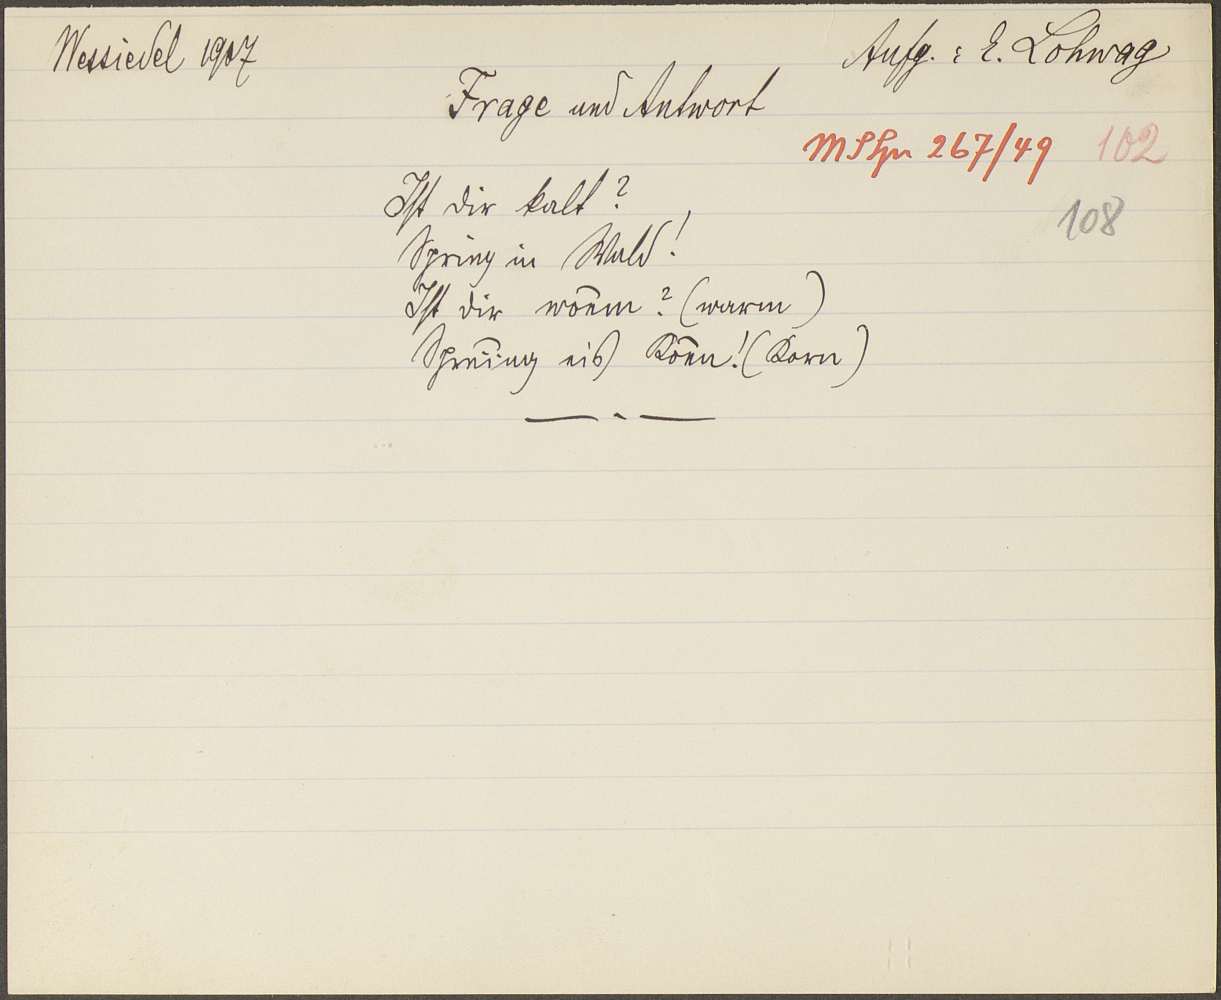 Wessiedel 1907
Aufg.: E. Lohwag
Frage und Antwort
MSHn 267/49 102
108
Ist dir kalt?
Spring in Wald!
Ist dir woem? (warm)
Spreiing eis Koen! (Korn)